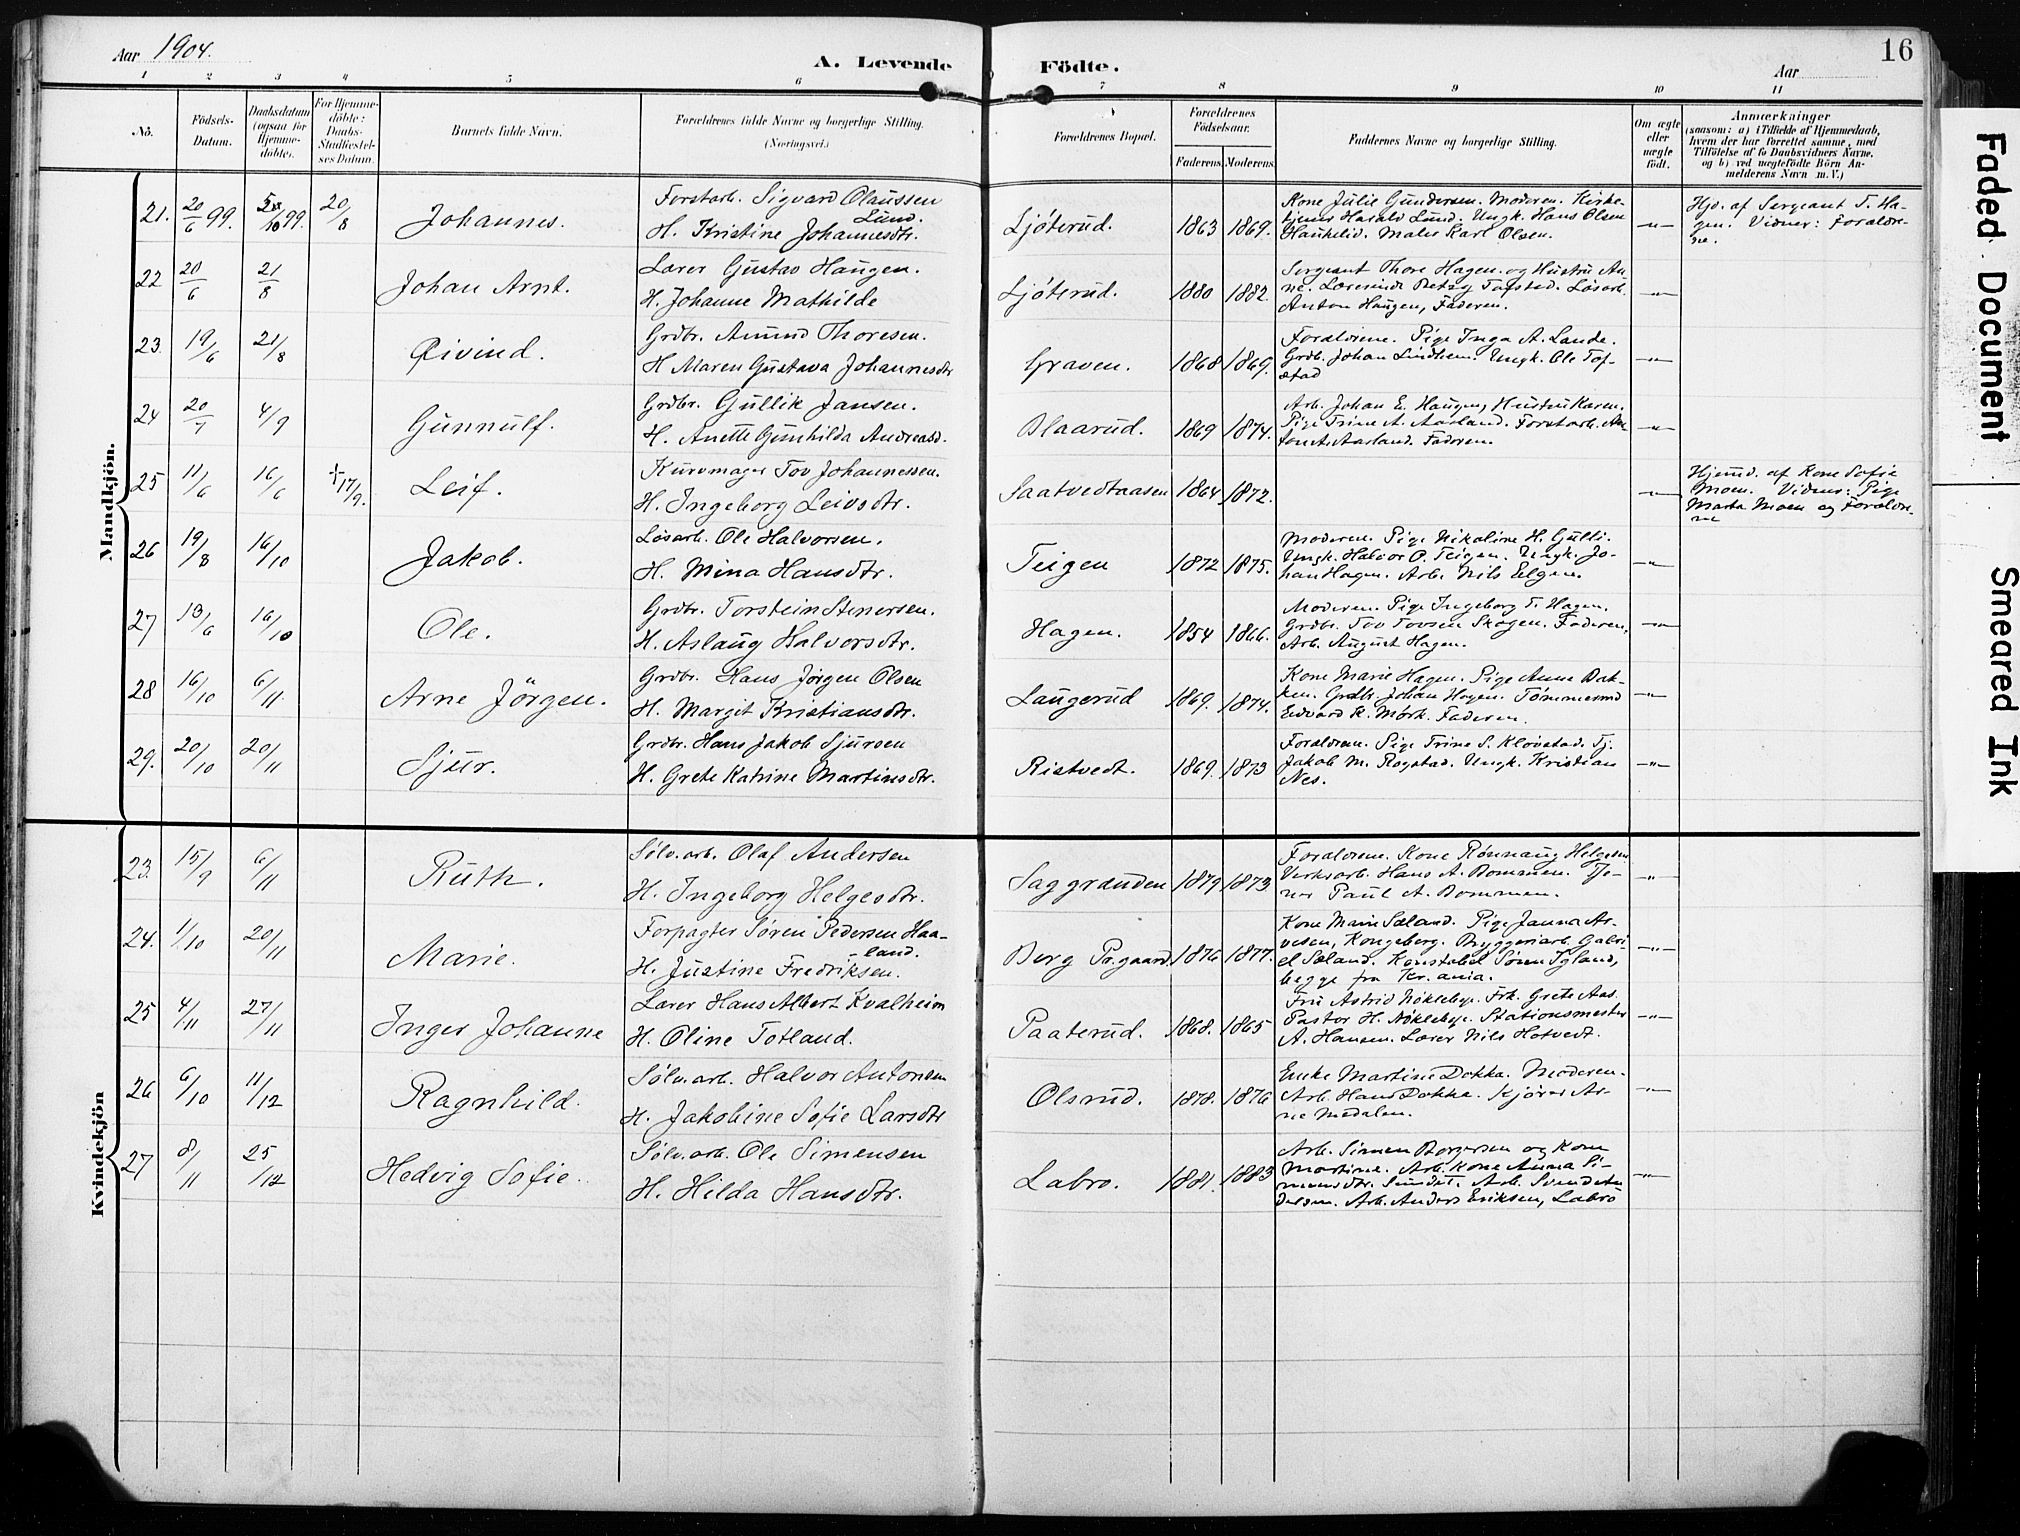 Aar 1904.
A. Levende Födte.
Aar
16
1 2 3 4 5 6 7 8 9 10 11
No.
Födsels-
Datum.
Daabsdatum
(ogsaa for
Hjemme-
döbte).
For Hjemme-
döbte:
Daabs-
Stadfæstel-
ses Datum.
Barnets fulde Navn.
Forældrenes fulde Navne og borgerlige Stilling.
(Næringsvei.)
Forældrenes Bopæl.
Forældrenes
Födselsaar.
Faderens. Moderens.
Faddernes Navne og borgerlige Stilling.
Om ægte
eller
uægte
födt.
Anmærkninger
(saasom: a) i Tilfælde af Hjemmedaab,
hvem der har forrettet samme, med
Tilföielse af to Daabsvidners Navne,
og b) ved uægtefödte Börn An-
melderens Navn m.V.)
Mandkjön.
21. 20/6 99. 10 99. 20/8 Johannes.
Forstarb. Sigvard Olaussen
Lund.
H. Kristine Johannesdtr.
Ljøterud. 1863 1869.
Kone Julie Gundersen. Moderen. Kirke-
tjener Harald Lund. Ungk. Hans Olsen
Haukelid. Maler Karl Olsen.
—"—
Hjd. af Sergeant T. Ha-
gen. Vidner: Foraldre-
ne.
22 20/6 21/8 Johan Arnt.
Lærer Gustav Haugen.
H. Johanne Mathilde
Ljøterud. 1880 1882.
Sergeant Thore Hagen og Hustru An-
ne. Lærerinde Betzy Tofstad. Løsarb.
Anton Haugen, Faderen.
—"—
23. 19/6 21/8 Øivind.
Grdbr. Amund Thoresen.
H Maren Gustava Johannesdtr
Graven. 1868 1869.
Forældrene. Pige Inga A. Lande.
Grdb. Johan Lindhem. Ungk. Ole Tof-
stad
—"—
24 20/7 4/9 Gunnulf.
Grdbr. Gullik Jansen.
H. Anette Gunhilda Andreasd.
Blaarud. 1869 1874.
Arb. Johan E. Haugen, Hustru Karen.
Pige Trine A. Aarland. Forstarb. An-
ton A. Aarland. Faderen.
—"—
25 11/6 16/6 †17/9. Leif.
Kurvmager Tov Johannessen.
H. Ingeborg Leivsdtr.
Saatvedtaasen 1864 1872.
—"—
Hjemd. af Kone Sofie
Moen. Vidner: Pige
Marta Moen og Forældre-
ne
26 19/8 16/10 Jakob.
Løsarb. Ole Halvorsen.
H. Mina Hansdtr.
Teigen 1872 1875.
Moderen. Pige Nikoline H. Gulli.
Ungk. Halvor O. Teigen. Ungk. Jo-
han Hagen. Arb. Nils Eelgen.
—"—
27 13/6 16/10 Ole.
Grdbr. Torstein Stenersen.
H. Aslaug Halvorsdtr.
Hagen. 1854 1866.
Moderen. Pige Ingeborg T. Hagen.
Grdbr. Tov Tovsen Skogen. Faderen,
Arb. August Hagen.
—"—
28 16/10 6/11. Arne Jörgen.
Grdbr. Hans Jörgen Olsen
H. Margit Kristiansdtr.
Laugerud 1869. 1874.
Kone Marie Hagen. Pige Anne Bak-
ken. Grdbr. Johan Hagen. Tømmermd
Edvard K. Mørk. Faderen.
—"—
29. 20/10 20/11 Sjur.
Grdbr. Hans Jakob Sjursen
H. Grete Katrine Martinsdtr.
Ristvedt. 1869. 1873
Forældrene. Pige Trine S. Klovstad. Tj.
Jakob M. Rogstad. Ungk. Kristian
Nes.
—"—
Kvindekjön
23. 15/9 6/11 Ruth.
Sølv.arb. Olaf Andersen
H. Ingeborg Helgesdtr.
Saggranden 1879. 1873
Forældrene. Kone Rønnaug Helgesen
Verksarb. Hans A. Bommen. Tje-
ner Paul A. Bommen.
—"—
24. 1/10 20/11 Marie.
Forpagter Søren Pedersen Haa-
land.
H. Justine Fredriksen.
Berg Pr.gaard 1876 1877.
Kone Marie Sæland. Pige Janna Ar-
vesen, Kongsberg. Byggeriarb. Gabri-
el Sæland. Konstabel Søren Tyland,
begge fra Kr.ania.
—"—
25 4/11 27/11 Inger Johanne
Lærer Hans Albert Kvalheim
H. Oline Totland.
Paaterud. 1868. 1865
Fru Astrid Nøkleby. Frk. Grete Aas.
Pastor H. Nøkleby. Stationsmester
A. Hansen. Lærer Nils Hotvedt.
—"—
26 6/10 11/12 Ragnhild.
Sølv.arb. Halvor Antonsen
H. Jakobine Sofie Larsdtr
Olsrud. 1878. 1876
Enke Martine Dokka. Moderen.
Arb. Hans Dokka. Kjører Ar-
ne Medalen.
—"—
27 8/11 25/12 Hedvig Sofie.
Sølv.arb. Ole Simensen
H. Hilda Hansdtr.
Labro. 1881. 1883
Arb. Simen Borgersen og Kone
Martine. Arb. Kone Anna Si-
mensdtr. Sundet. Arb.
Arb. Anders Eriksen, Labro
—"—
Faded Document
Smeared Ink